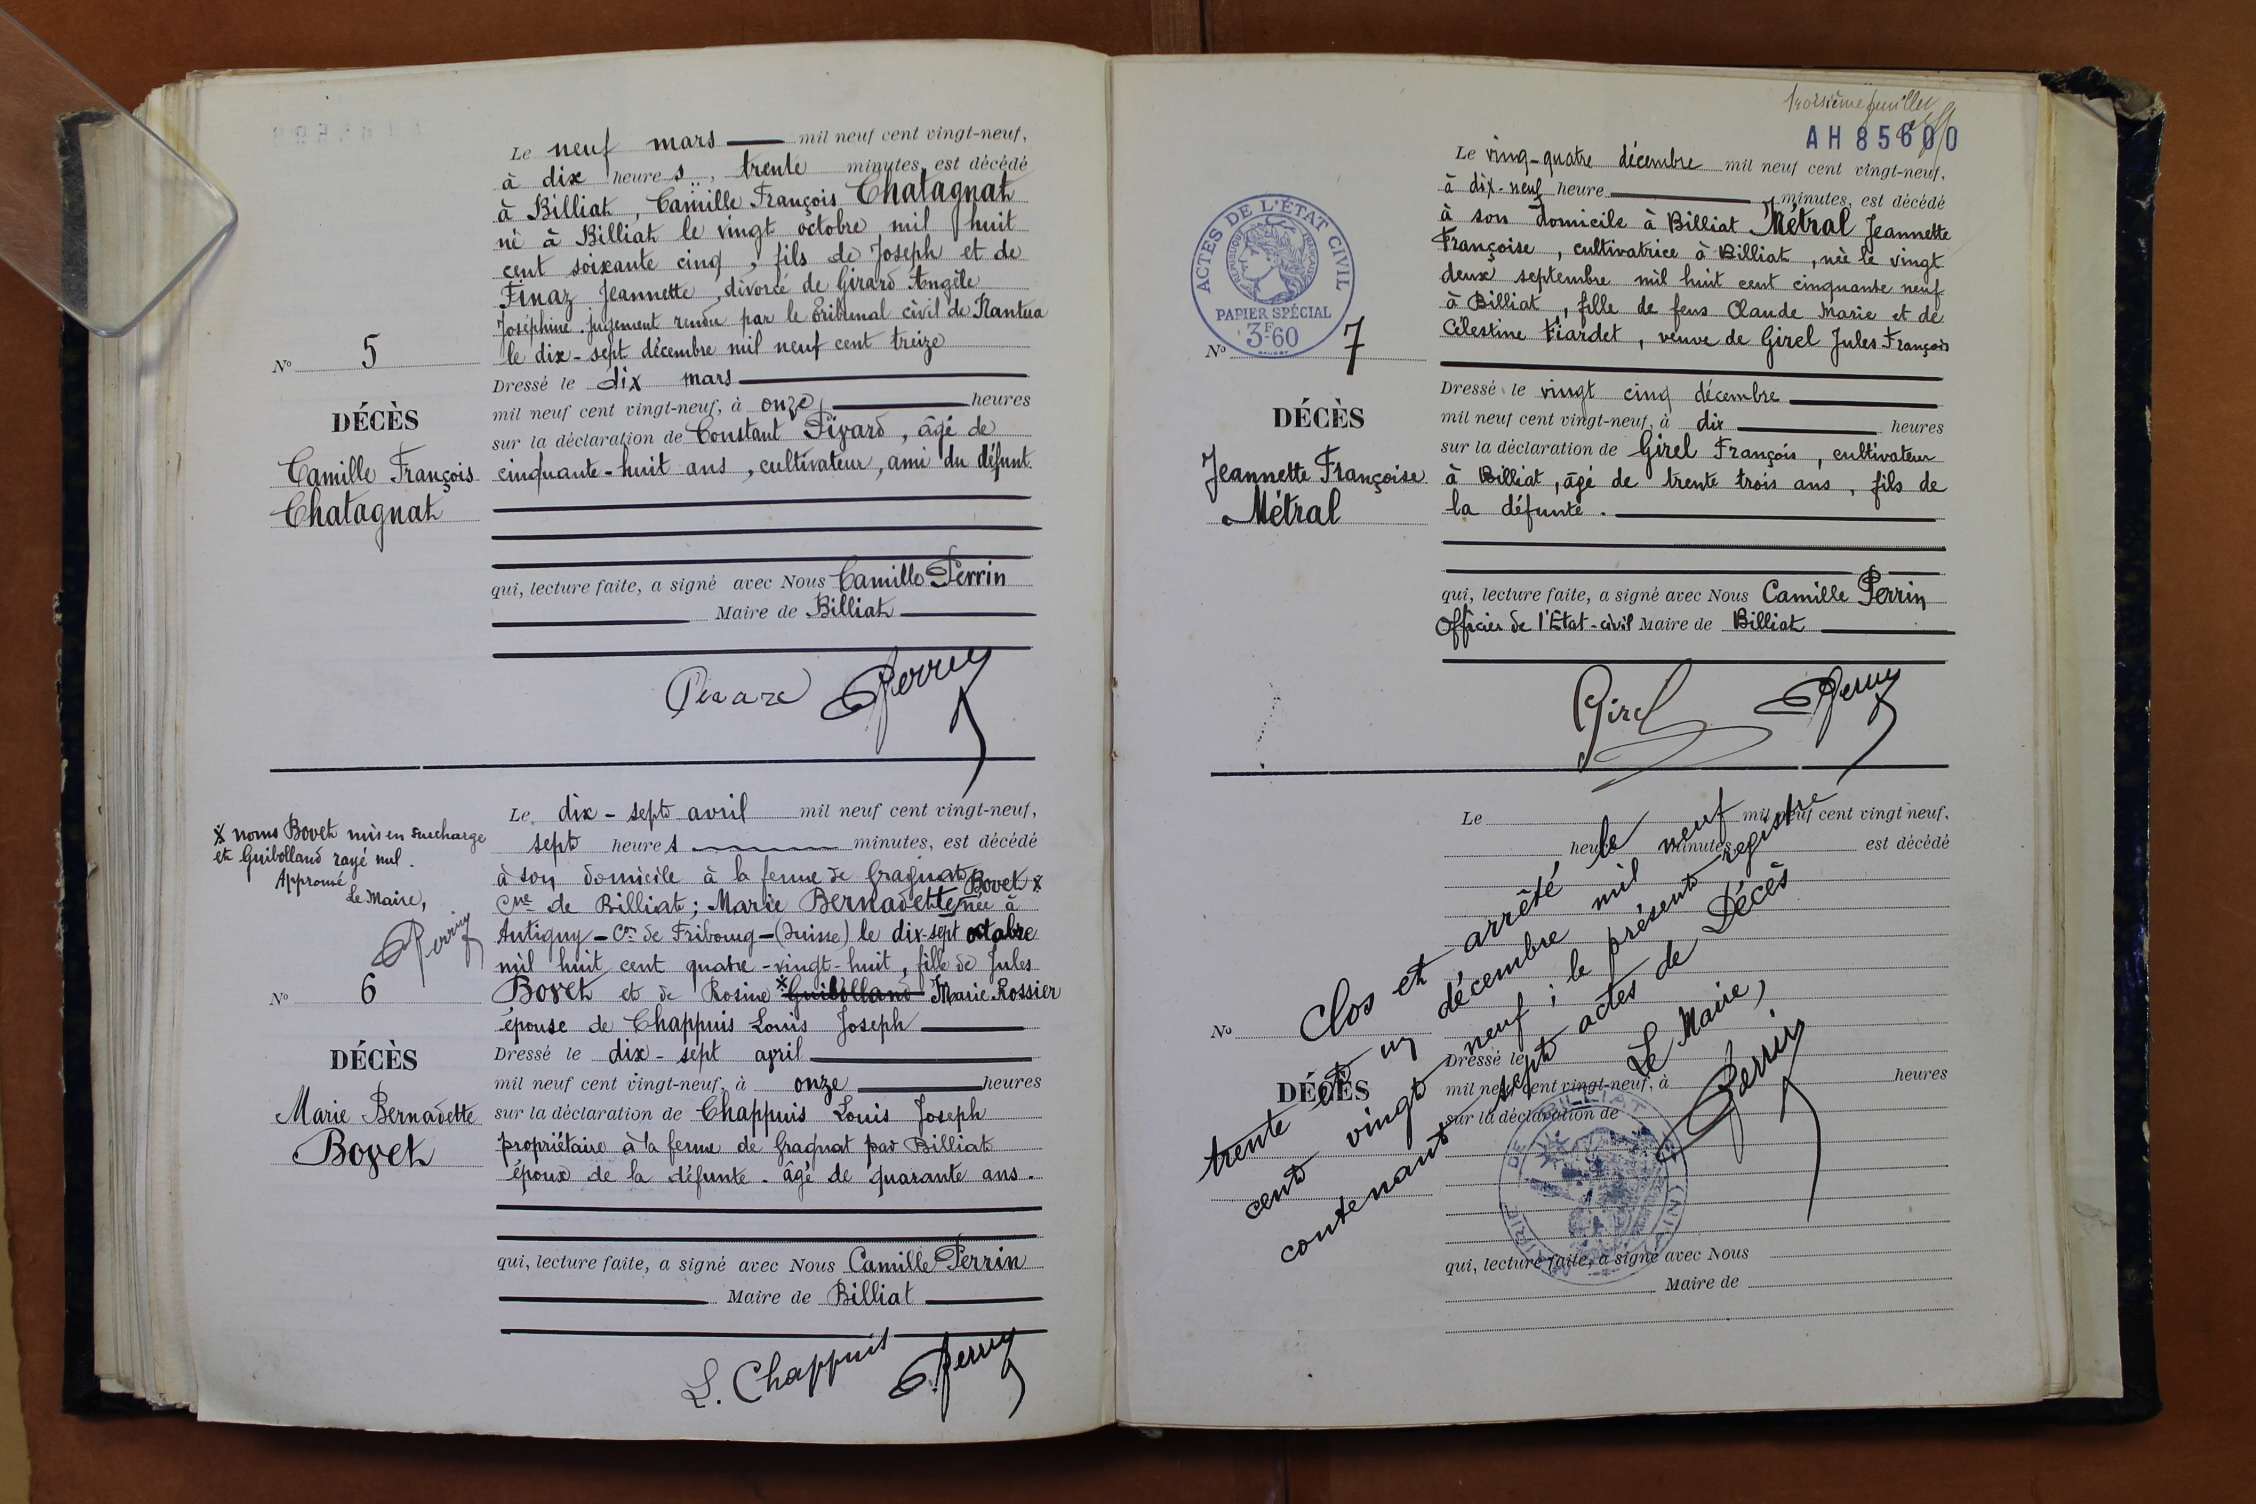 Le neuf mars mil neuf cent vingt-neuf,
à dix heures, trente minutes, est décédé
à Billiat, Camille François Chatagnat
né à Billiat le vingt octobre mil huit
cent soixante cinq, fils de Joseph et de
Finaz Jeannette, divorcé de Girard Angèle
Joséphine. jugement rendu par le Tribunal civil de Nantua
le dix-sept décembre mil neuf cent treize
No 5
Dressé le dix mars
mil neuf cent vingt-neuf, à onze heures
DÉCÈS
sur la déclaration de Constant Pivard, âgé de
Camille François
cinquante-huit ans, cultivateur, ami du défunt.
Chatagnat
qui, lecture faite, a signé avec Nous Camille Perrin
Maire de Billiat
Perrin
Le dix-sept avril mil neuf cent vingt-neuf,
x noms Bovet mis en surcharge
et Guibolland rayé nul.
Approuvé
Le Maire,
Perrin
sept heures minutes, est décédé
à son domicile à la ferme de Gragnat
Cne de Billiat; Marie Bernadette Bovet x née à
Autigny - Con de Fribourg - (Suisse) le dix-sept octobre
mil huit cent quatre-vingt-huit, fille de Jules
No 6
Bovet et de Rosine x Guibolland Marie Rossier
épouse de Chappuis Louis Joseph
Dressé le dix-sept avril
DÉCÈS
mil neuf cent vingt-neuf, à onze heures
Marie Bernadette
sur la déclaration de Chappuis Louis Joseph
Bovet
propriétaire à la ferme de Gragnat par Billiat
époux de la défunte. âgé de quarante ans.
qui, lecture faite, a signé avec Nous Camille Perrin
Maire de Billiat
L. Chappuis Perrin
troisième feuillet
AH 85600
Le ving-quatre décembre mil neuf cent vingt-neuf,
à dix-neuf heure minutes, est décédé
à son domicile à Billiat Métral Jeannette
Françoise, cultivatrice à Billiat, née le vingt
deux septembre mil huit cent cinquante neuf
à Billiat, fille de feus Claude Marie et de
Célestine Fiardet, veuve de Girel Jules François
ACTES DE L'ÉTAT CIVIL
RÉPUBLIQUE FRANÇAISE
PAPIER SPÉCIAL
3F60
No 7
Dressé le vingt cinq décembre
mil neuf cent vingt-neuf, à dix heures
DÉCÈS
sur la déclaration de Girel François, cultivateur
Jeannette Françoise
à Billiat, âgé de trente trois ans, fils de
Métral
la défunte.
qui, lecture faite, a signé avec Nous Camille Perrin
Officier de l'État-civil Maire de Billiat
Girel Perrin
Le mil neuf cent vingt neuf,
heure minutes, est décédé
No
Dressé le
DÉCÈS
mil neuf cent vingt-neuf, à heures
sur la déclaration de
qui, lecture faite, a signé avec Nous
Maire de
Clos et arrêté le
trente et un décembre mil neuf
cent vingt neuf; le présent registre
contenant sept actes de Décès
Le Maire,
Perrin
MAIRIE DE BILLIAT